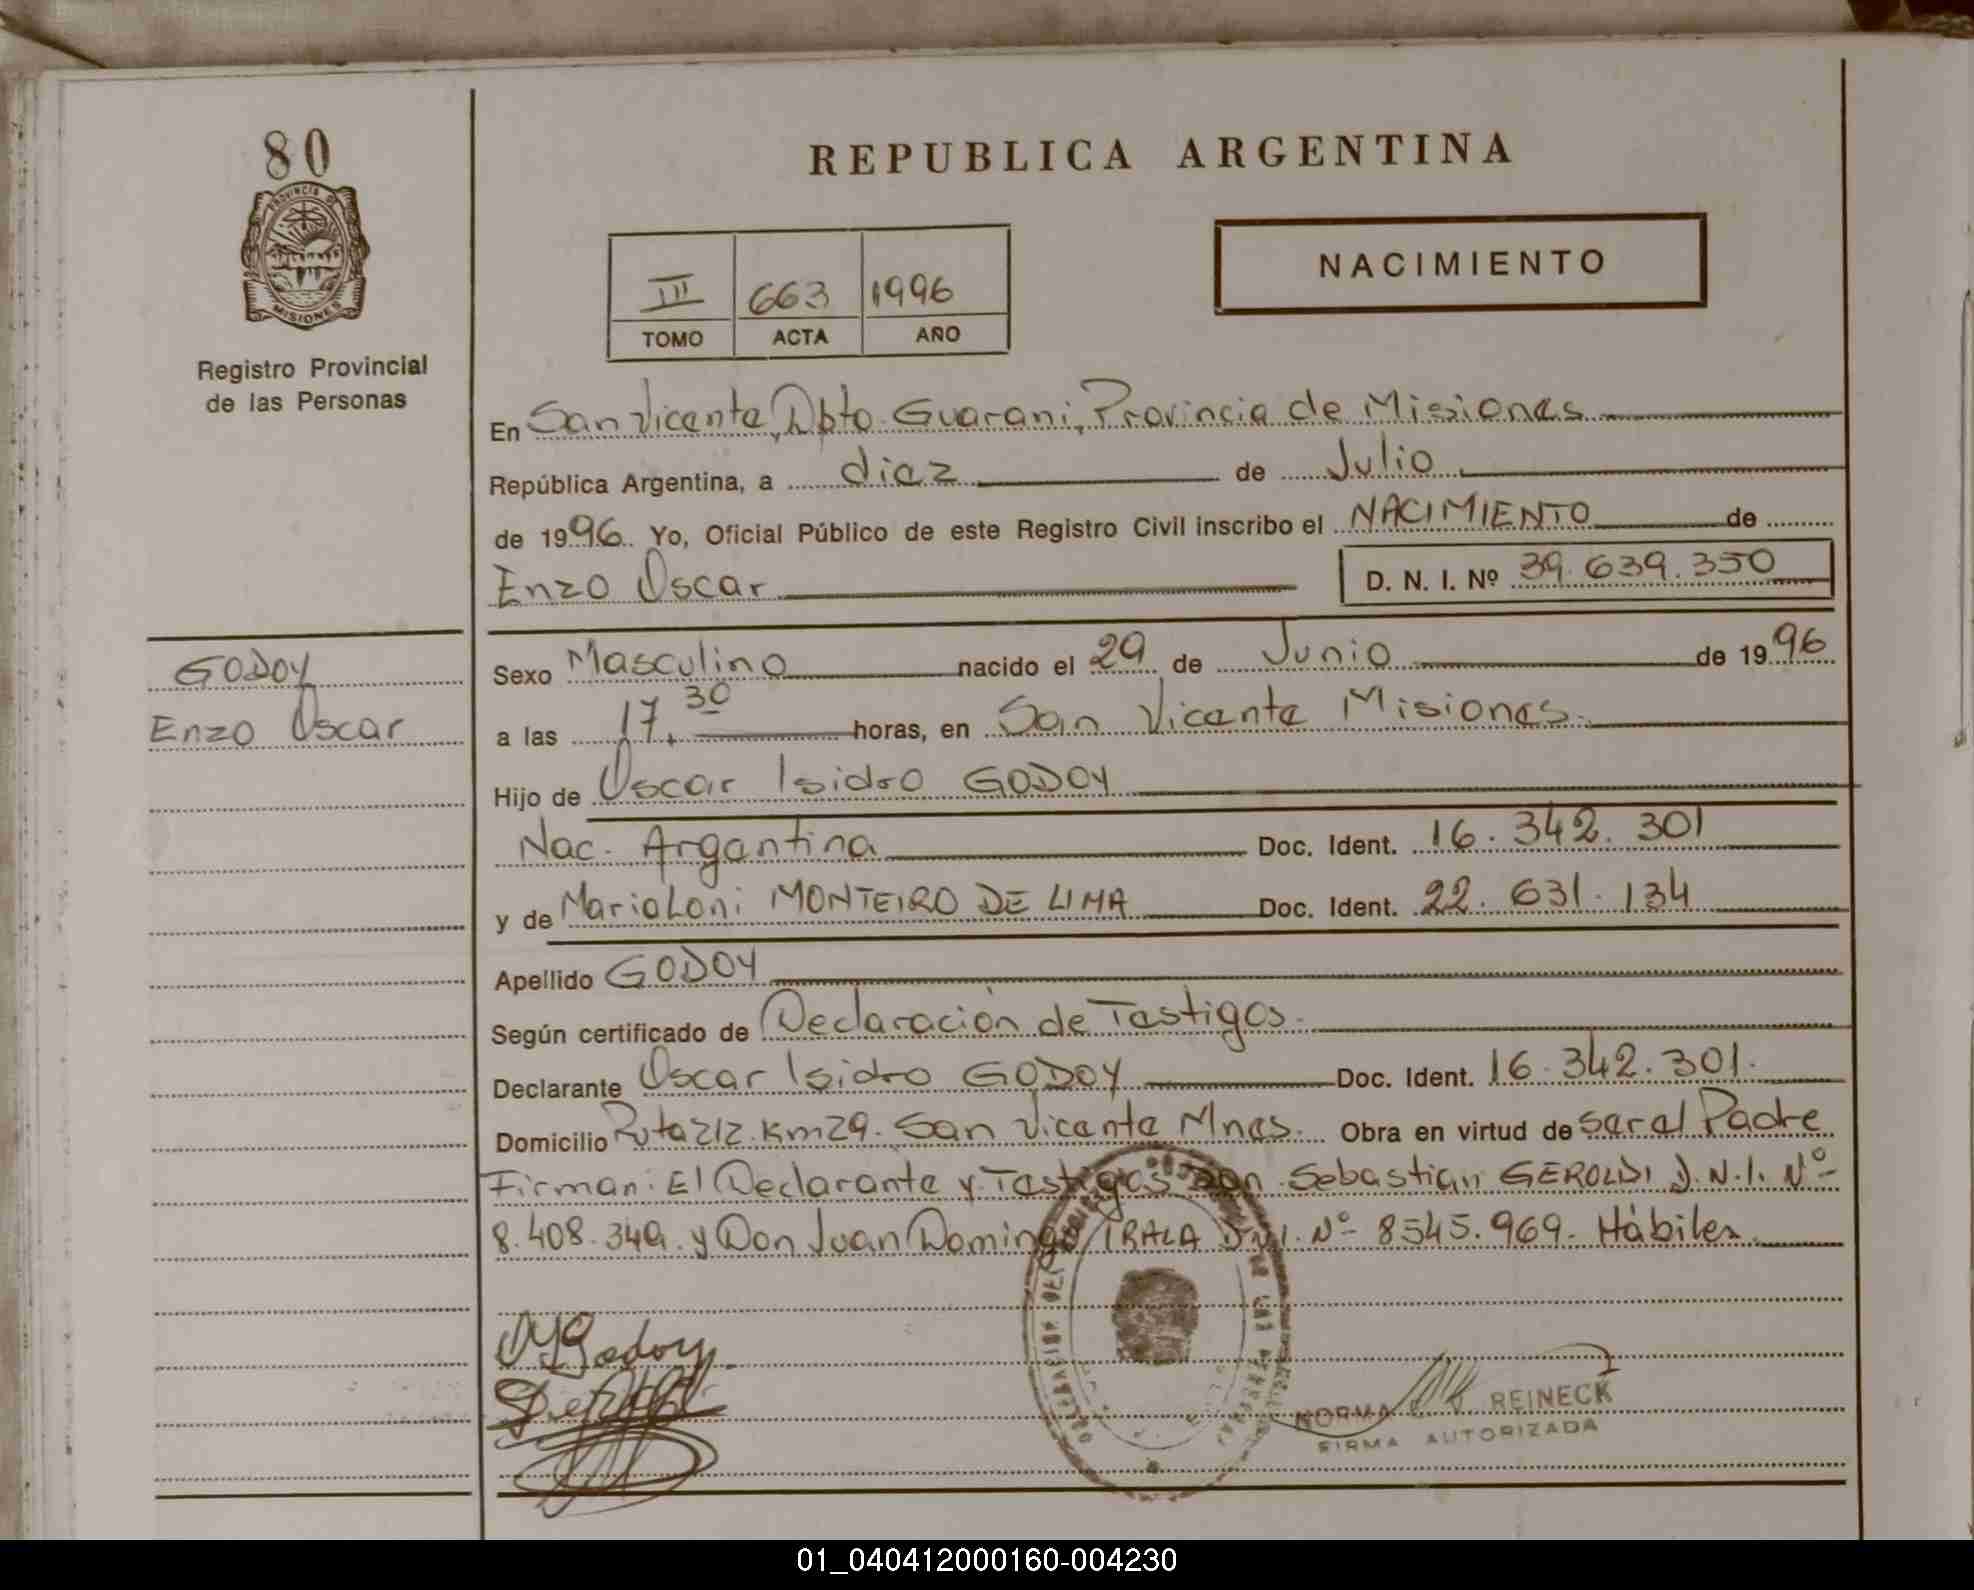 80
PROVINCIA DE
MISIONES
Registro Provincial
de las Personas
REPUBLICA ARGENTINA
III 663 1996
TOMO ACTA AÑO
NACIMIENTO
En San Vicente, Dpto. Guarani, Provincia de Misiones
República Argentina, a diez de Julio
de 1996. Yo, Oficial Público de este Registro Civil inscribo el NACIMIENTO de
Enzo Oscar D. N. I. Nº 39.639.350
GODOY
Enzo Oscar
Sexo Masculino nacido el 29 de Junio de 1996
a las 17.30 horas, en San Vicente Misiones.
Hijo de Oscar Isidro GODOY
Nac. Argentina Doc. Ident. 16.342.301
y de Maria Loni MONTEIRO DE LIMA Doc. Ident. 22.631.134
Apellido GODOY
Según certificado de Declaración de Testigos.
Declarante Oscar Isidro GODOY Doc. Ident. 16.342.301.
Domicilio Ruta 212. Km 29. San Vicente Mnes. Obra en virtud de ser el Padre
Firman: El Declarante y Testigos Don Sebastian GEROLDI D.N.I. Nº
8.408.349. y Don Juan Domingo IRALA D.N.I. Nº 8545.969. Hábiles.
Godoy
NORMA REINECK
FIRMA AUTORIZADA
01_040412000160-004230